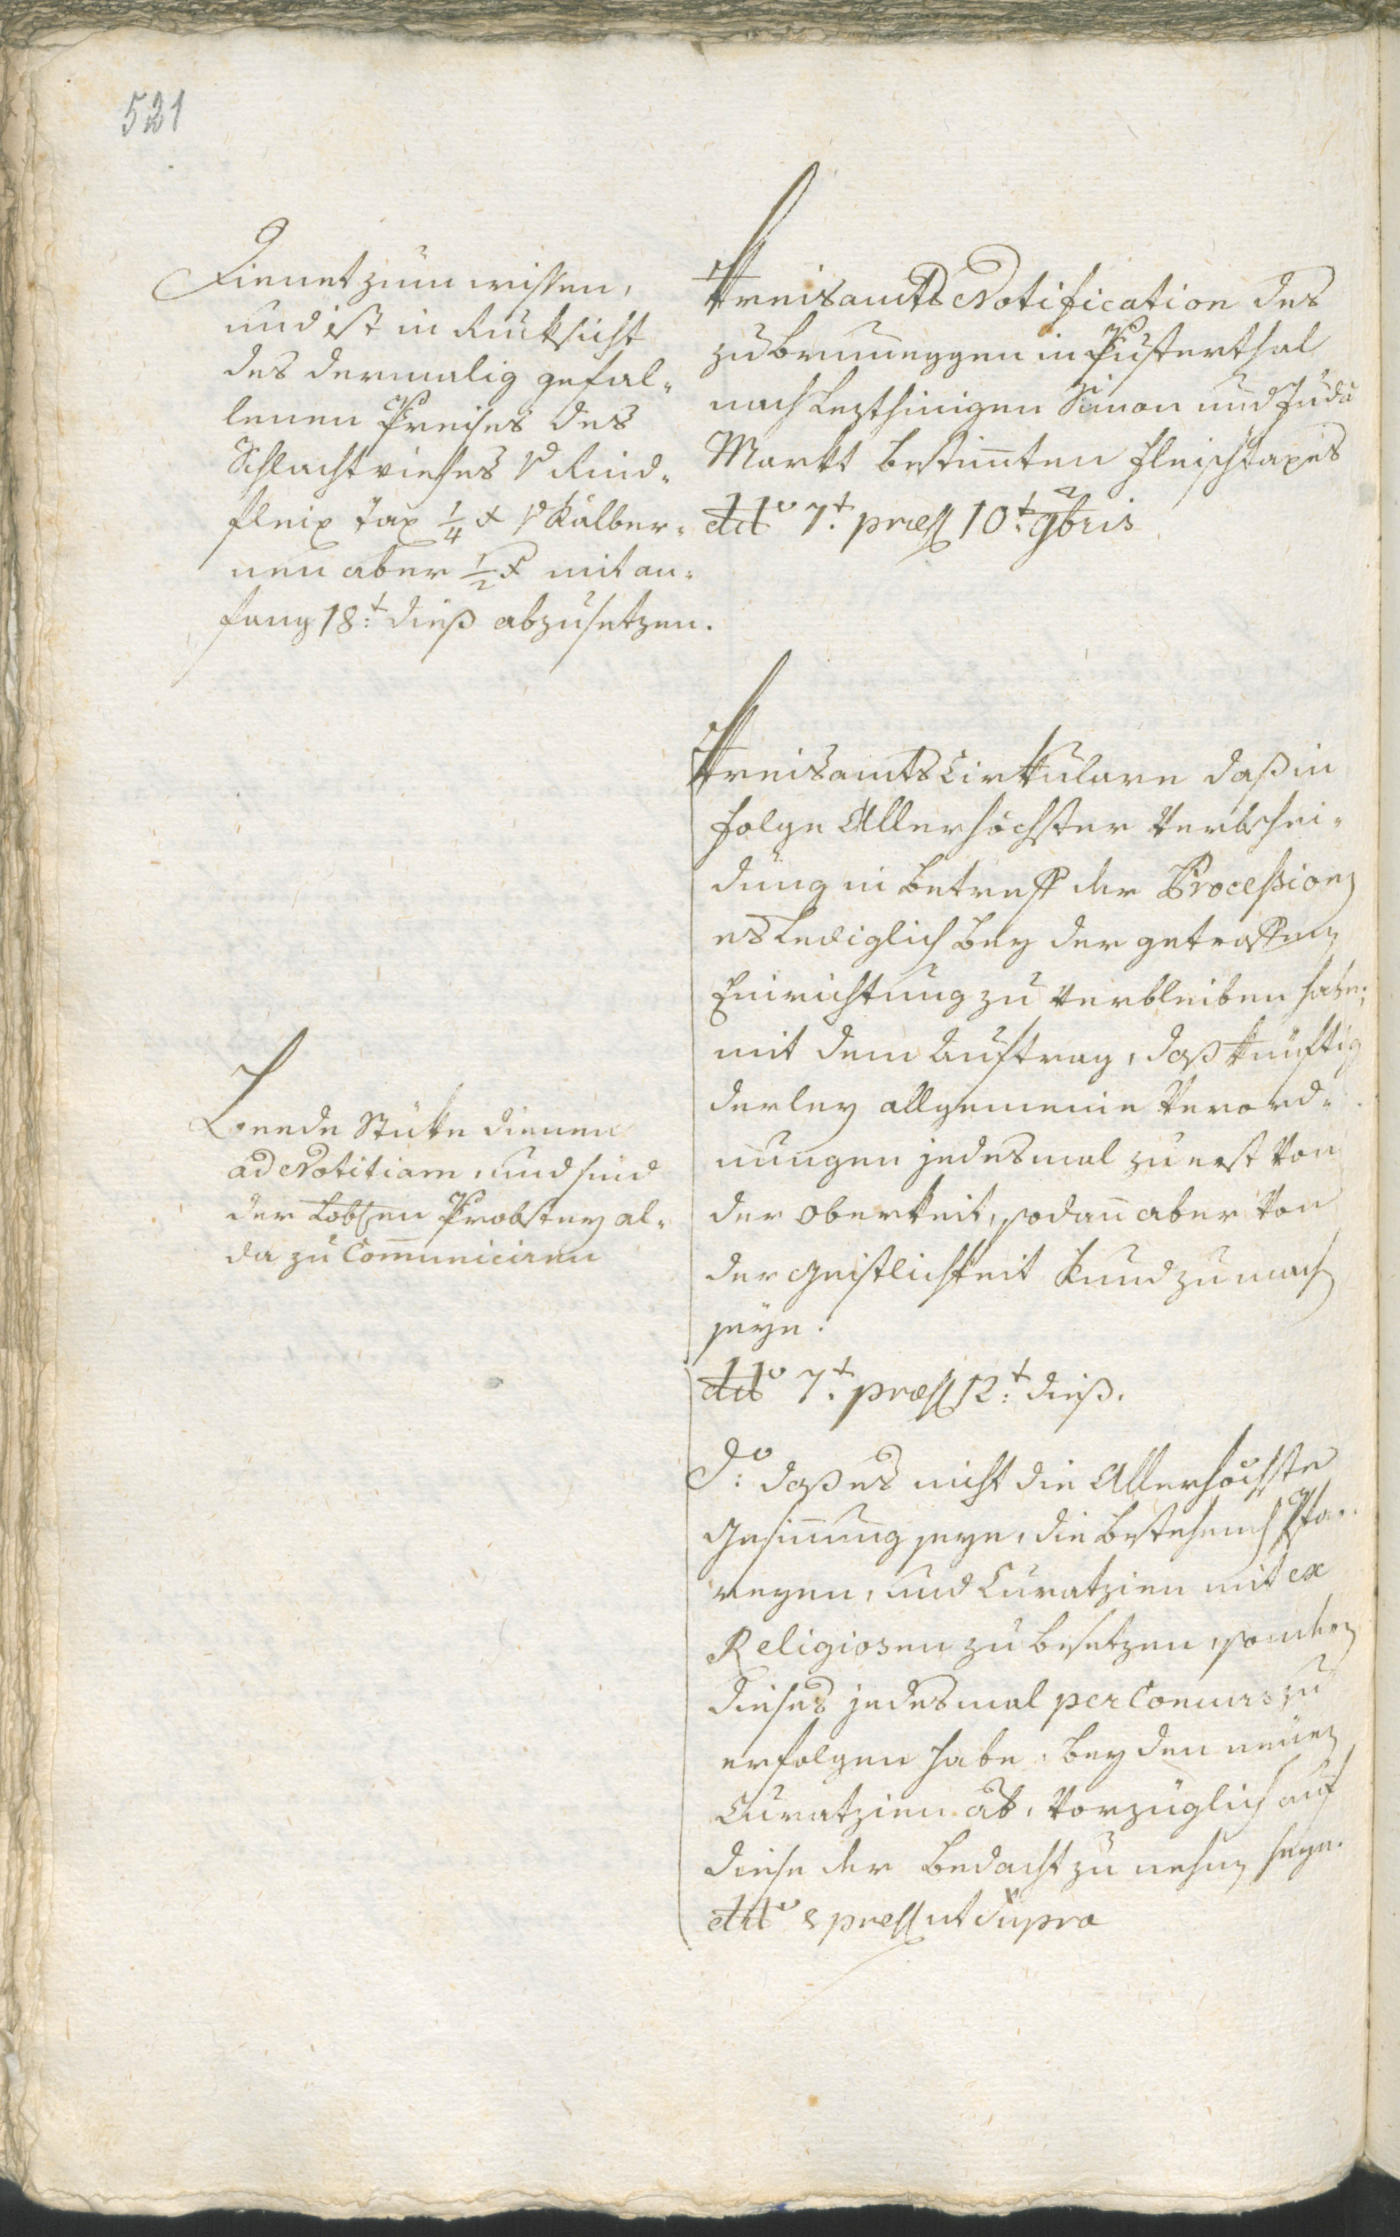 521
Dienet zum wissen,
und ist in Rücksicht
des dermalig gefal-
lenen Preises des
Schlachtviehes Rind-
fleix tax 1/4 x Kälber-
nen aber 1/2 x mit an-
fang 18:t dieß abzusetzen.
Kreisamts Notification des
zu Bruneggen in Pusterthal
nach lezthinigen Simon und Judä
Markt bestimten Fleischtaxes
dto 7:t præs 10:t 9bris
Kreisamts Cirkulare daß in
folge Allerhöchster Verbschei-
dung in betreff der Procession
es lediglich bey der getroffenen
Einrichtung zu verbleiben habe;
mit dem Auftrag, daß künftig
derley allgemeine Verord-
nungen jedesmal zu erst von
der oberkeit, sodan aber von
der geistlichkeit kund zu mach
seye.
dto 7:t præs 12:t dieß.
Beede Stücke dienen
ad Notitiam, und sind
der Löbl:en Probstey al-
da zu Comuniciren
do: daß es nicht die Allerhöchste
Gesinnung seye, die bestehend Pfar-
reyen, und Curatzien mit ex
Religiosen zu besetzen, sondern
dieses jedesmal per Concurs zu
erfolgen habe, bey den neüen
Curatzien ab. vorzüglich auf
diese der bedacht zu nehmen seye.
dto & præs ut Supra